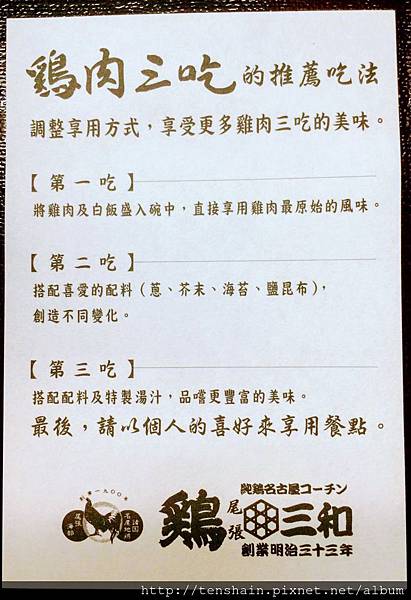 鶏肉三吃的推薦吃法
調整享用方式，享受更多雞肉三吃的美味。
【第一吃】
將雞肉及白飯盛入碗中，直接享用雞肉最原始的風味。
【第二吃】
搭配喜愛的配料（蔥、芥末、海苔、鹽昆布），
創造不同變化。
【第三吃】
搭配配料及特製湯汁，品嚐更豐富的美味。
最後，請以個人的喜好來享用餐點。
創業一九〇〇年
鶏
尾張
三和
純鶏名古屋コーチン
創業明治三十三年
http://tenshain.pixnet.net/album